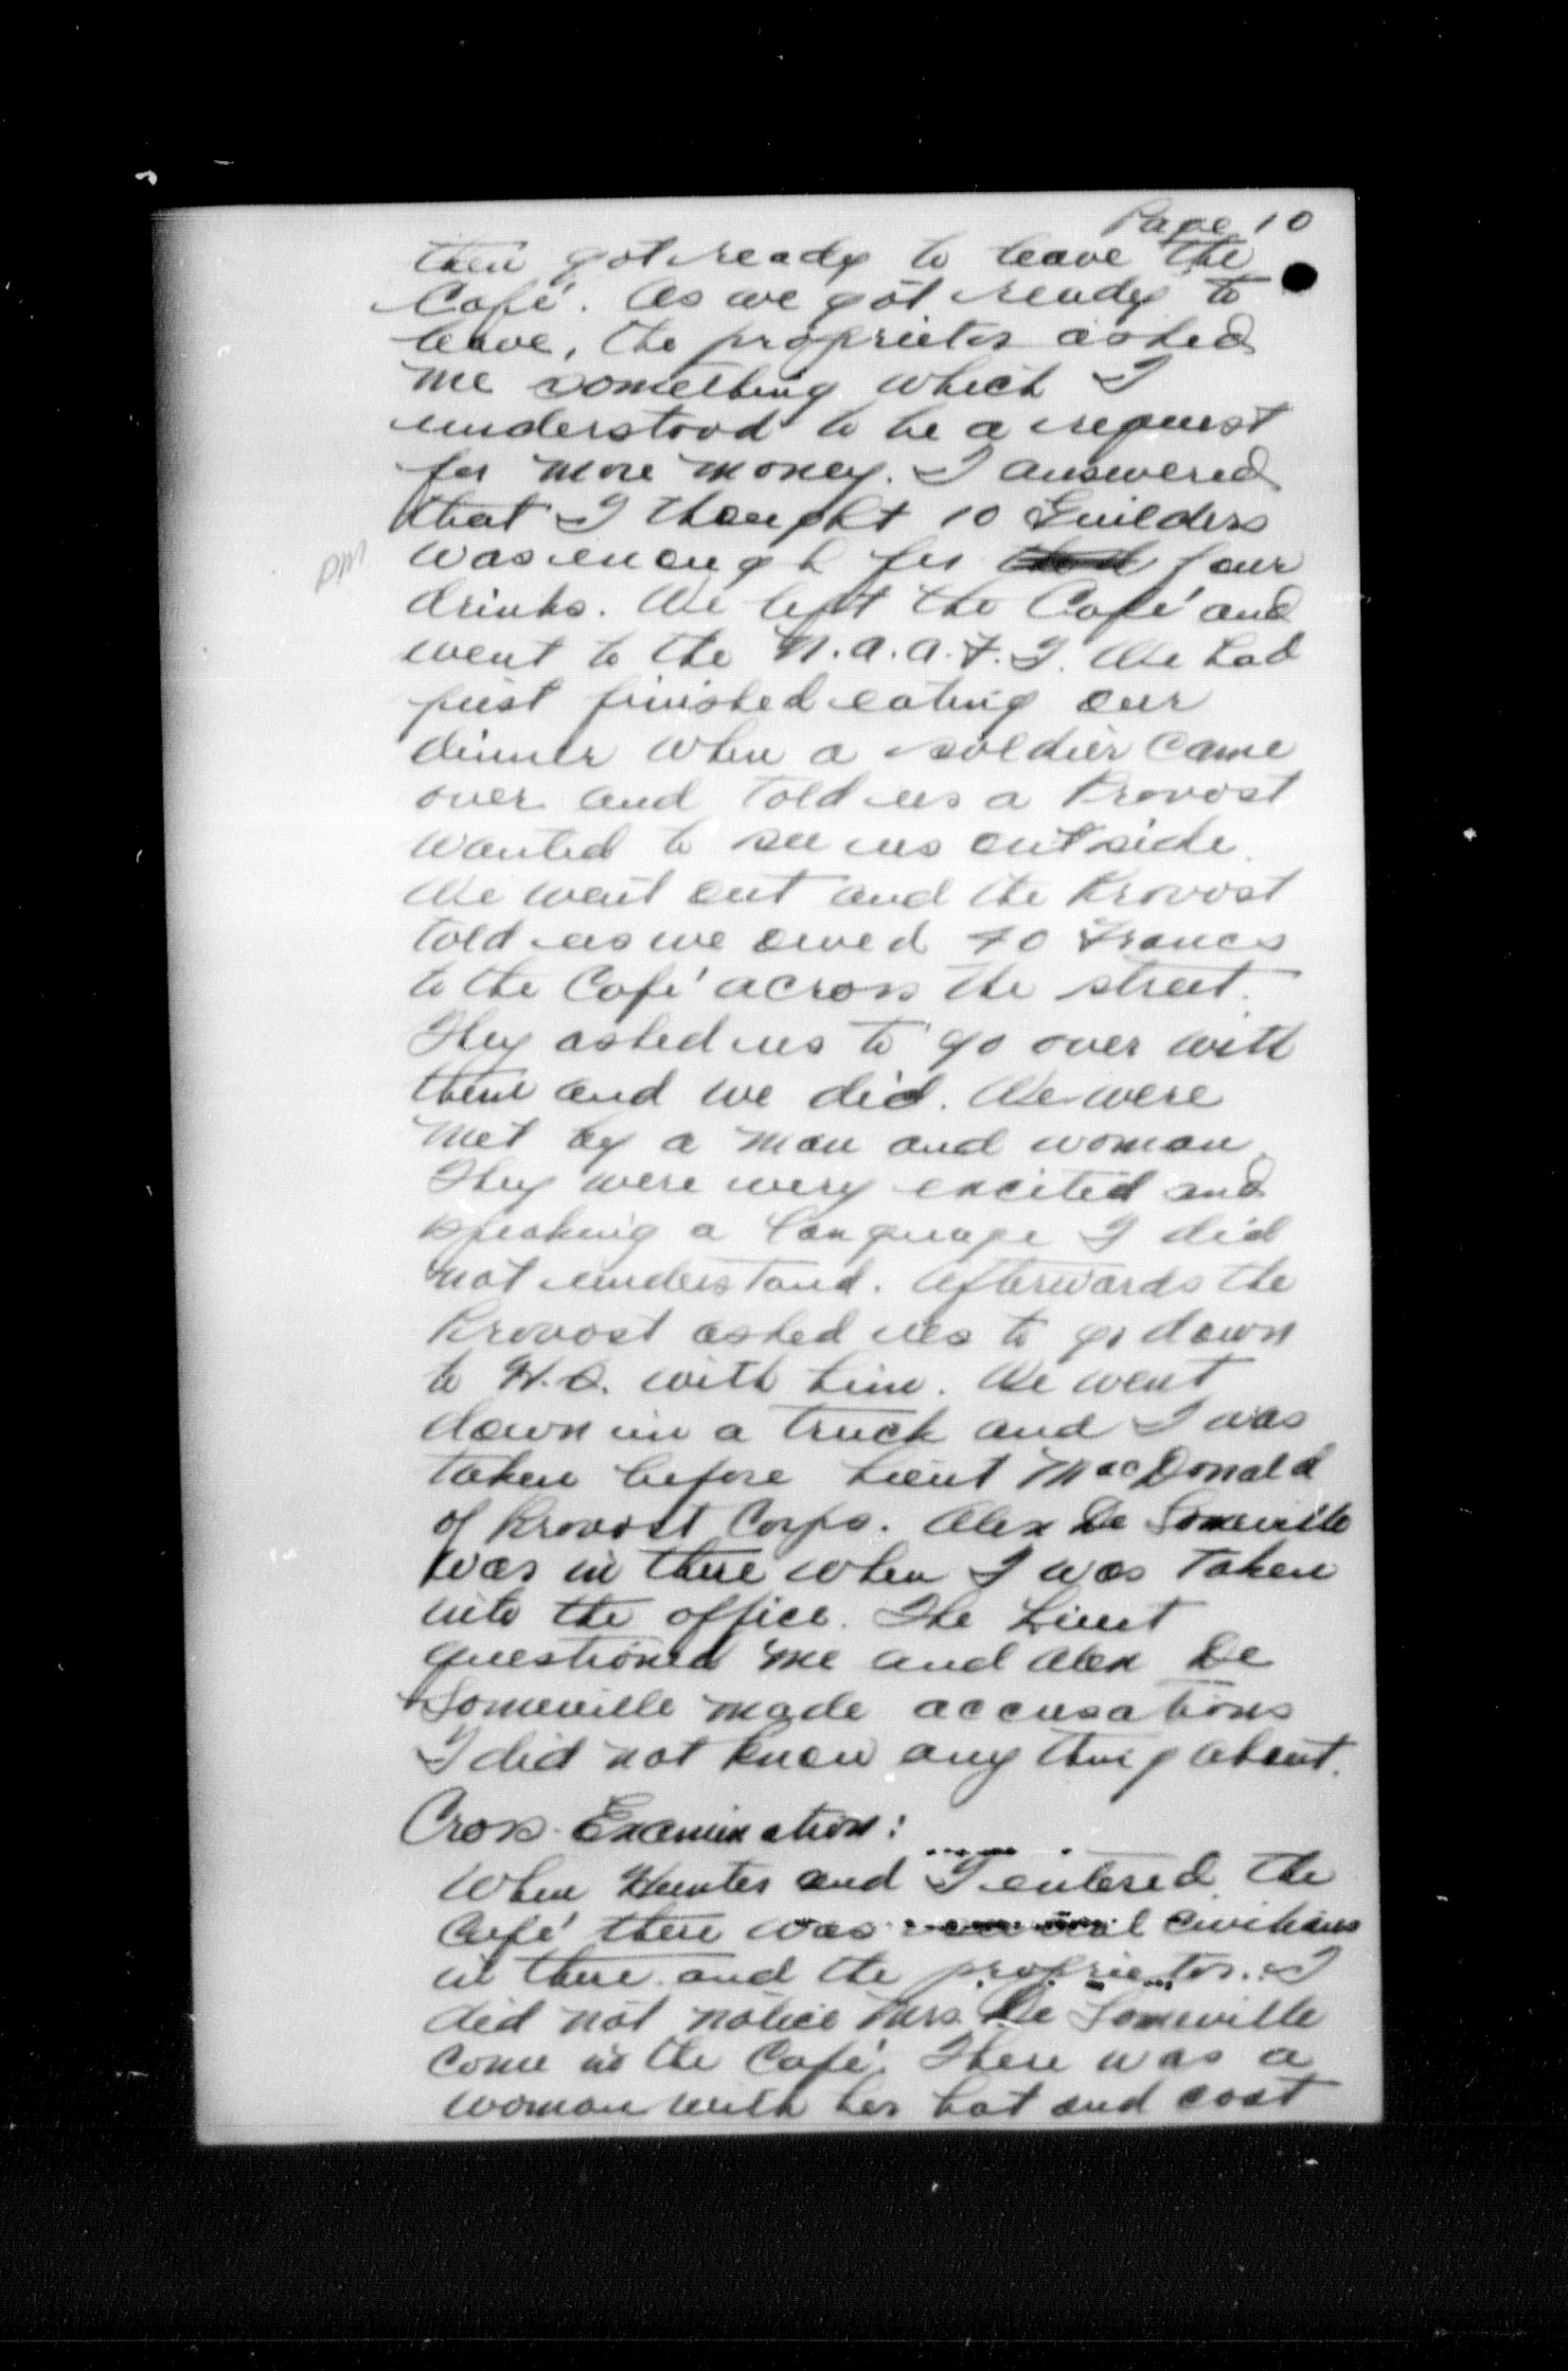 Page 10
then got ready to leave the
Café. As we got ready to
leave, the proprietor asked
me something which I
understood to be a request
for more money. I answered
that I thought 10 Guilders
PM was enough for four
drinks. We left the Café and
went to the N.A.A.F.I. We had
just finished eating our
dinner when a soldier came
over and told us a Provost
wanted to see us outside.
We went out and the Provost
told us we owed 40 Francs
to the Café across the street.
They asked us to go over with
them and we did. We were
met by a man and woman.
They were very excited and
speaking a language I did
not understand. Afterwards the
Provost asked us to go down
to H.Q. with him. We went
down in a truck and I was
taken before Lieut MacDonald
of Provost Corps. Alex De Someville
was in there when I was taken
into the office. The Lieut
questioned me and Alex De
Someville made accusations
I did not know any thing about.
Cross-Examination:
When Hunter and I entered the
Café there was several civilians
in there and the proprietor. I
did not notice Mrs. De Someville
come in the Café. There was a
woman with her hat and coat